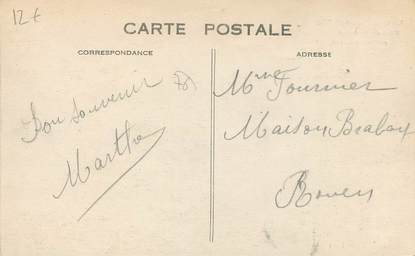 12€
CARTE POSTALE
CORRESPONDANCE
ADRESSE
Bon souvenir
Marthe
Mme Fournier
Maison Brabant
Rouen